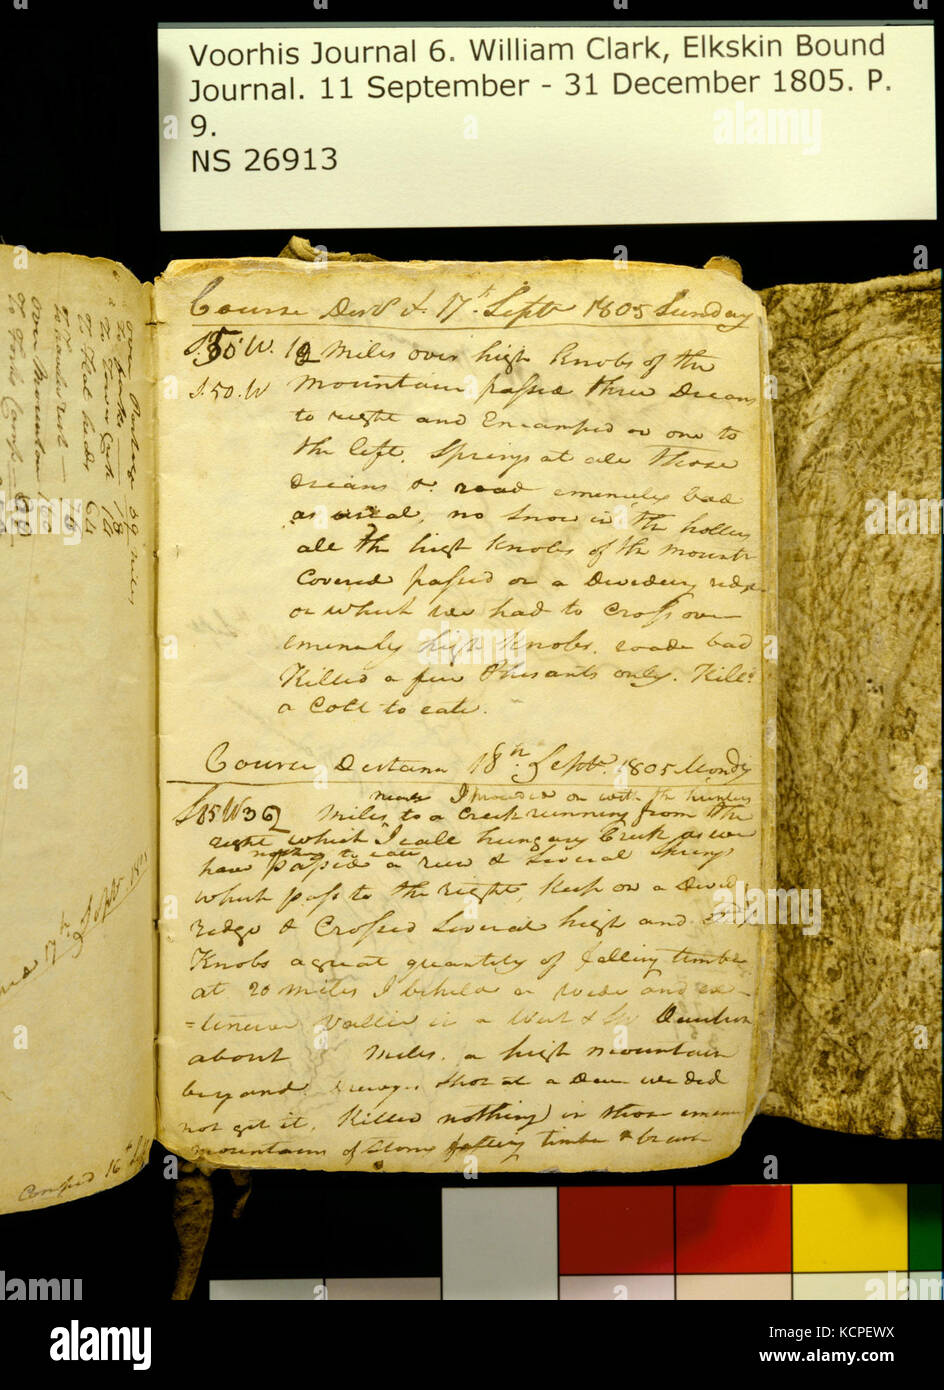 Voorhis Journal 6. William Clark, Elkskin Bound
Journal. 11 September - 31 December 1805. P.
9.
NS 26913
Course Dists &. 17th Septr 1805 Sunday
S. 50 W. 12 Miles over high Knobs of the
S. 50. W mountain passed three Dreans
to right and Encamped on one to
the left. Springs at all those
dreans & road emencely bad
as usial, no Snow in the hollers
all the high knobs of the mounts
Covered passed on a Dividing ridge
on which we had to Cross over
emencely high knobs. roade bad
Killed a fiew Phesants only. Killd
a Colt to eate.
Course Distance 18th Septr. 1805 Monday
I proceded on with the hunters
S 85 W 32 Miles to a Creek running from the
right which I call hungary Creek as we
nothing to eate
have passed a run & Several Springs
which pass to the right, Keep on a Divideing
ridge & Crossed Several high and Steep
Knobs a great quantity of falling timber
at 20 miles I beheld a wide and ex-
=tencive Vallie in a West & SW Derection
about Miles. a high mountain
beyond. Shot at a Deer we did
not get it, Killed nothing in those emence
mountains of Stones falling timber & brush
over Portage 39 miles
18
14
to flat heds 64
76
over Mountain 160
17th Septr 1805
16th
alamy
Image ID: KCPEWX
www.alamy.com